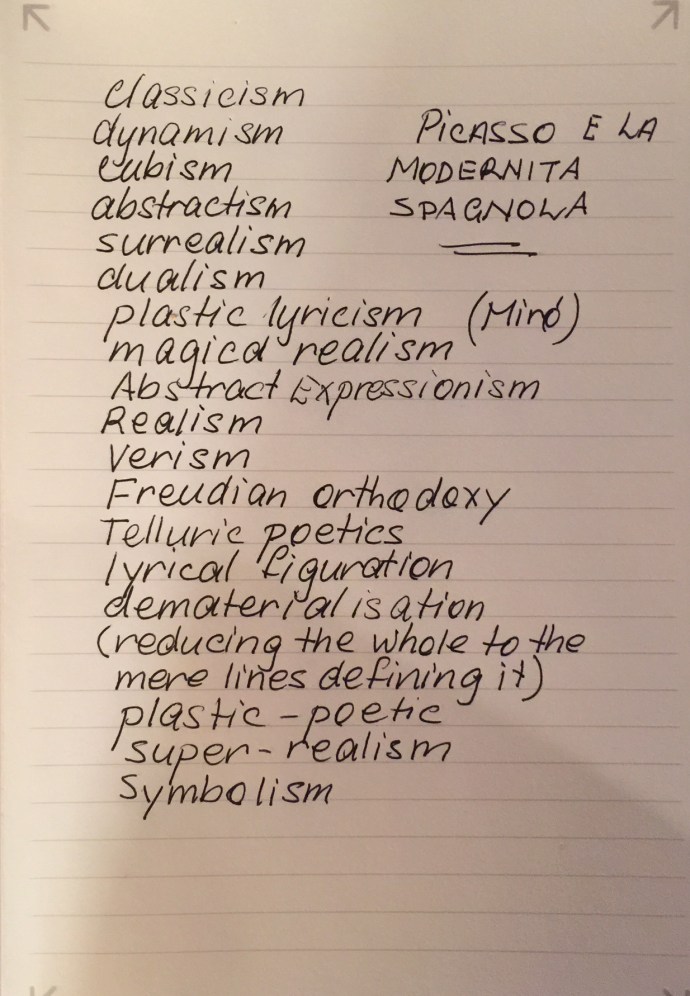 classicism
dynamism
cubism
abstractism
surrealism
dualism
plastic lyricism (Miró)
magical realism
Abstract Expressionism
Realism
Verism
Freudian orthodoxy
Telluric poetics
lyrical figuration
dematerialisation
(reducing the whole to the
mere lines defining it)
plastic-poetic
super-realism
Symbolism
PICASSO E LA
MODERNITA
SPAGNOLA